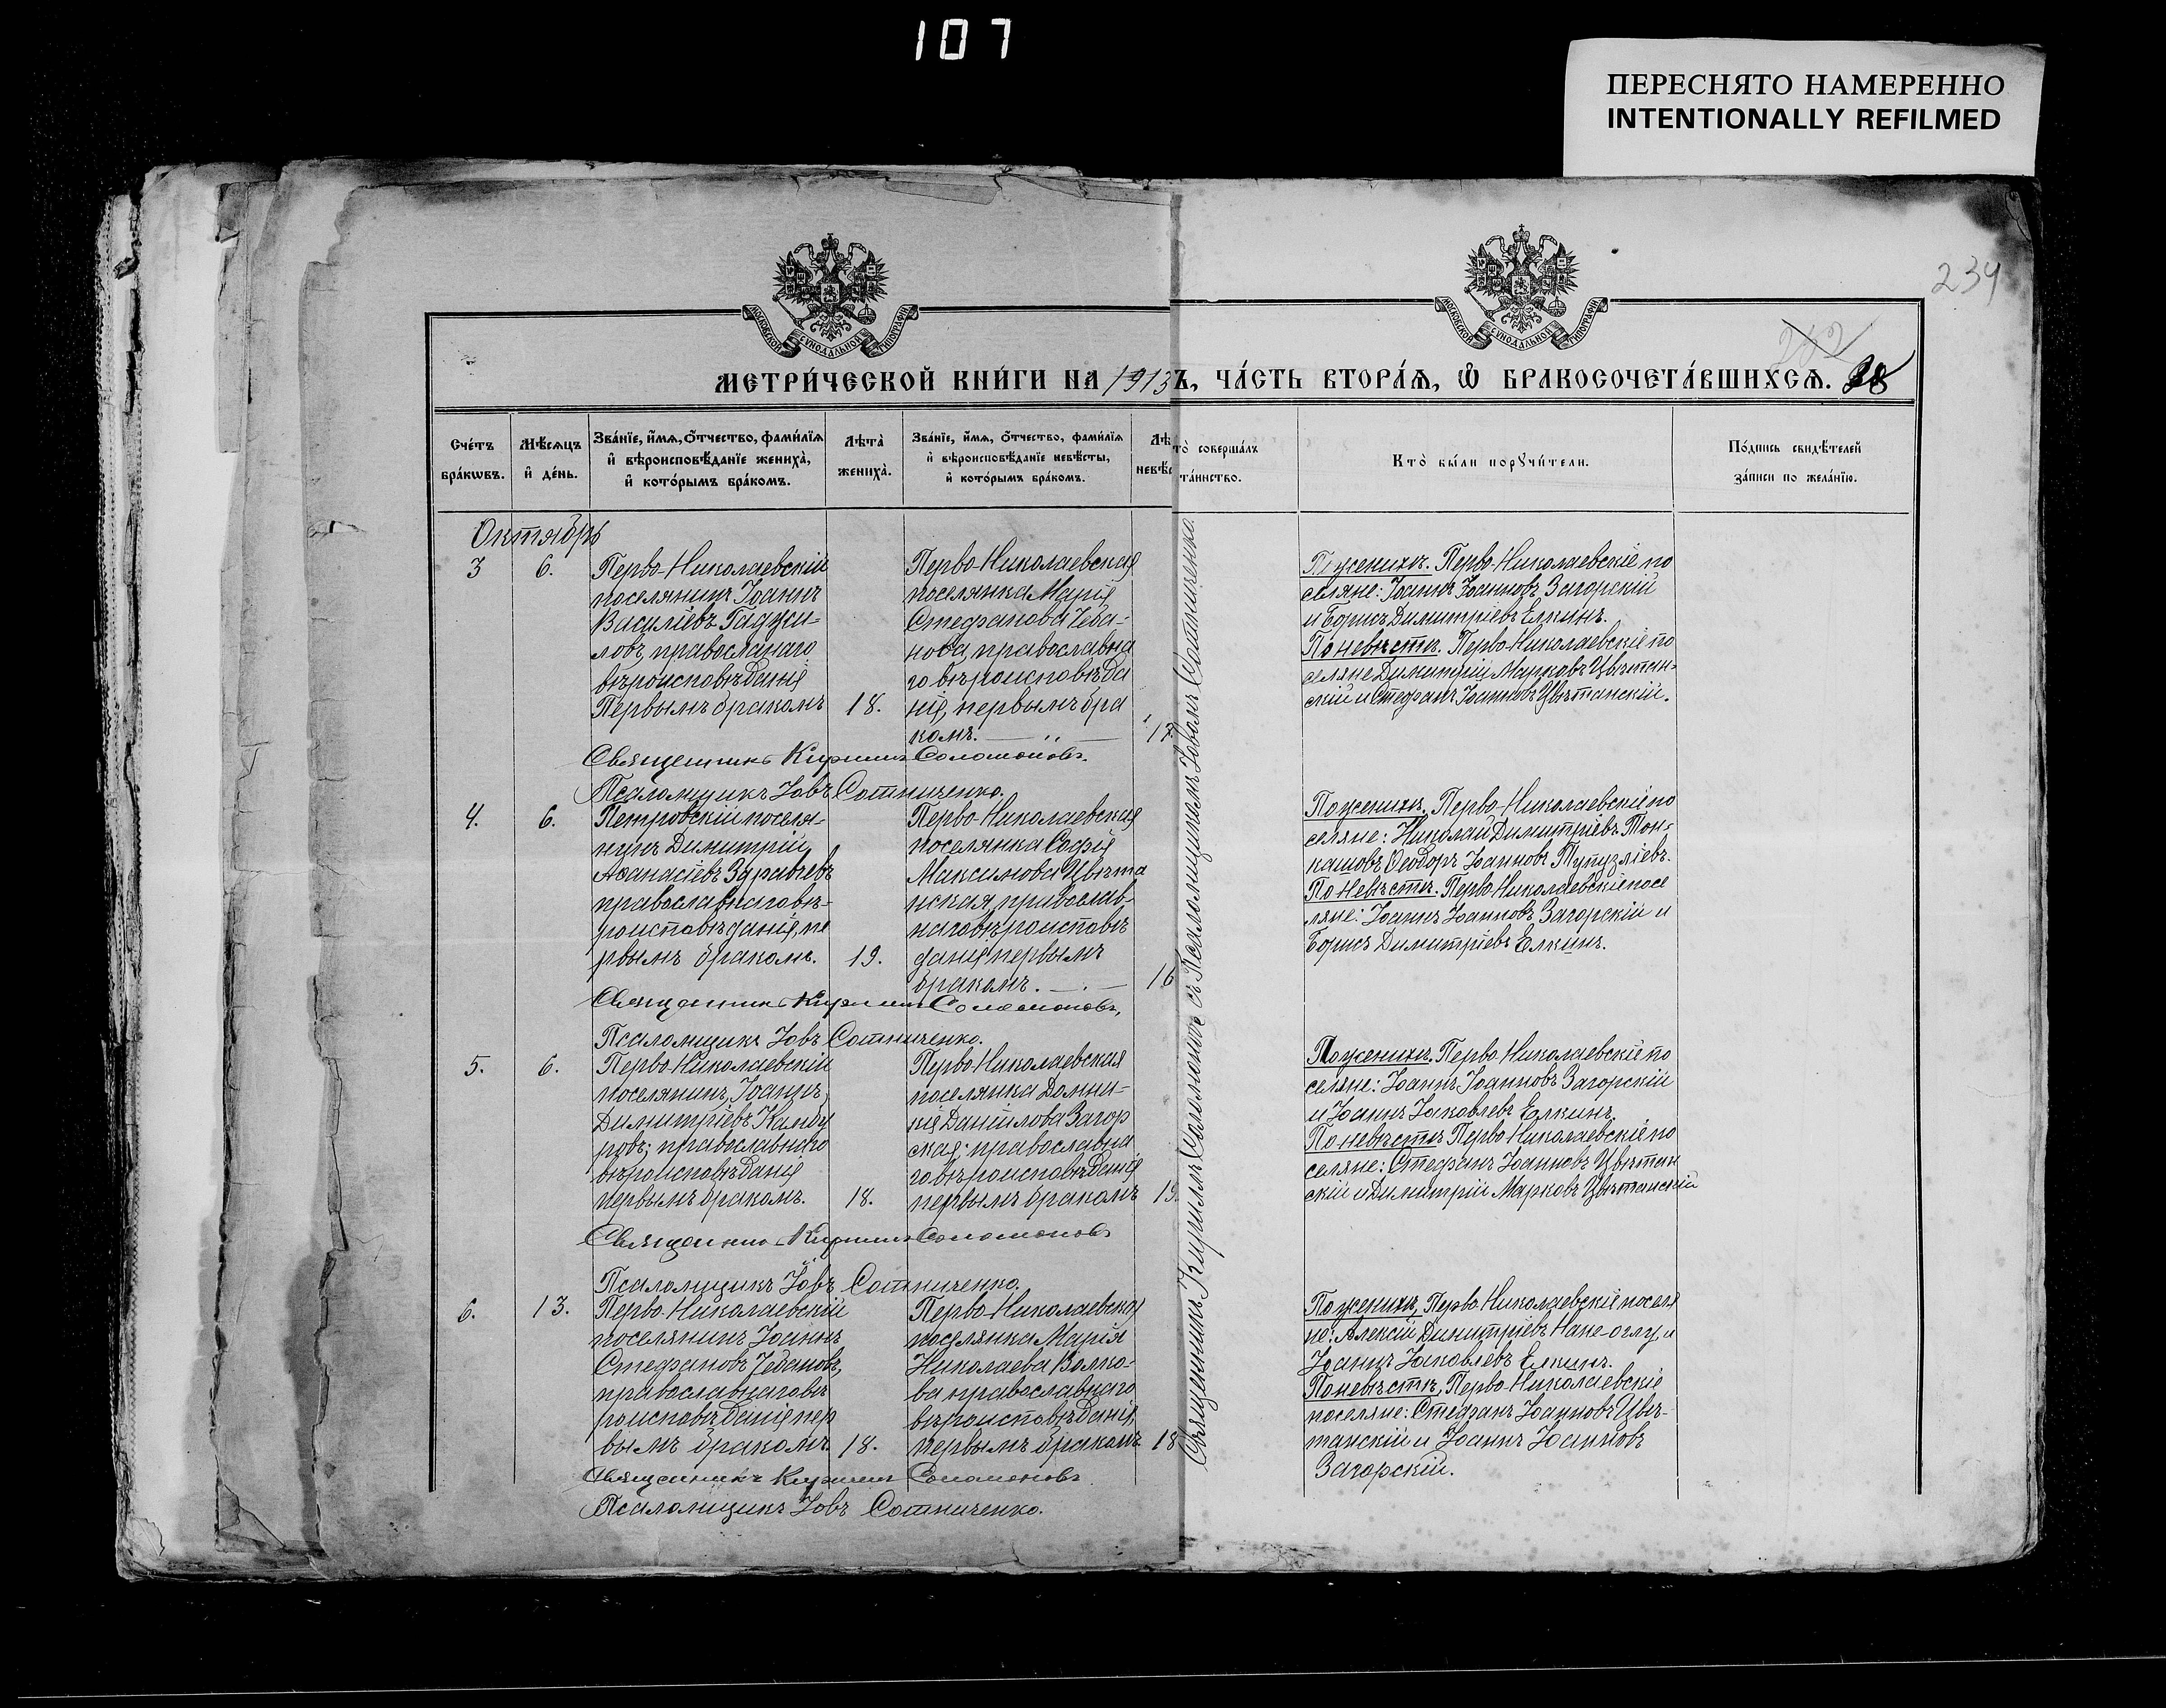 107
ПЕРЕСНЯТО НАМЕРЕННО
INTENTIONALLY REFILMED
234
202
МОСКОВСКОЙ СѴНОДАЛЬНОЙ ТИПОГРАФІИ
МОСКОВСКОЙ СѴНОДАЛЬНОЙ ТИПОГРАФІИ
МЕТРИ́ЧЕСКОЙ КНИ́ГИ НА 1913 Ъ, ЧА́СТЬ ВТОРА́Ѧ, Ѡ БРАКОСОЧЕТА́ВШИХСѦ. 38
Сче́тъ бра́кѡвъ.
Мѣ́сѧцъ и҆ де́нь.
Зва́нїе, и҆́мѧ, ѻ҆́тчество, фами́лїѧ и҆ вѣроисповѣ́данїе жениха̀, и҆ кото́рымъ бра́комъ.
Лѣ́та жениха̀.
Зва́нїе, и҆́мѧ, ѻ҆́тчество, фами́лїѧ и҆ вѣроисповѣ́данїе невѣ́сты, и҆ кото́рымъ бра́комъ.
Лѣ невѣс
то̀ соверша́лъ та́инство.
Кто̀ бы́ли порꙋчи́тели.
По́дпись свидѣ́телей за́писи по жела́нїю.
Октябрь
3
6.
Перво-Николаевскій
поселянинъ Іоаннъ
Василіевъ Гаджи-
ловъ, православнаго
вѣроисповѣданія
Первымъ бракомъ
18.
Перво-Николаевская
поселянка Марія
Стефанова Чеба-
нова, православна
го вѣроисповѣда
нія, первымъ бра
комъ.
17
По женихѣ. Перво-Николаевскіе по
селяне: Іоаннъ Іоанновъ Загорскій
и Борисъ Димитріевъ Елкинъ.
По невѣстѣ. Перво-Николаевскіе по
селяне Димитрій Марковъ Цвѣтан-
скій и Стефанъ Іоанновъ Цвѣтанскій.
Священникъ Кириллъ Соломоновъ.
Псаломщикъ Іовъ Сотниченко.
4.
6.
Петровскій поселя-
нинъ Димитрій
Аѳанасіевъ Здравчевъ
православнаго вѣ-
роисповѣданія, пе
рвымъ бракомъ.
19.
Перво-Николаевская
поселянка Софія
Максимова Цвѣта
нская, православ-
наго вѣроисповѣ
данія первымъ
бракомъ.
16
По женихѣ. Перво-Николаевскіе по
селяне: Николай Димитріевъ Тон-
кашовъ Ѳеодоръ Іоанновъ Пупузліевъ.
По невѣстѣ. Перво Николаевскіе посе
ляне: Іоаннъ Іоанновъ Загорскій и
Борисъ Димитріевъ Елкинъ.
Священникъ Кириллъ Соломоновъ,
Псаломщикъ Іовъ Сотниченко.
5.
6.
Перво-Николаевскій
поселянинъ, Іоаннъ,
Димитріевъ Камбу
ровъ; православнаго
вѣроисповѣданія
первымъ бракомъ.
18.
Перво-Николаевская
поселянка Домни-
кія Даніилова Загор
ская; православна
го вѣроисповѣданія
первымъ бракомъ
19.
По женихѣ. Перво Николаевскіе по
селяне: Іоаннъ Іоанновъ Загорскій
и Іоаннъ Іаковлевъ Елкинъ.
По невѣстѣ Перво-Николаевскіе по
селяне: Стефанъ Іоанновъ Цвѣтан
скій и Димитрій Марковъ Цвѣтанскій
Священникъ Кириллъ Соломоновъ
Псаломщикъ Іовъ Сотниченко.
6.
13.
Перво Николаевскій
поселянинъ Іоаннъ
Стефановъ Чебановъ,
православнаго вѣ
роисповѣданія, пер
вымъ бракомъ
18.
Перво-Николаевская
поселянка Марія
Николаева Волко-
ва православнаго
вѣроисповѣданія,
первымъ бракомъ
18
По женихѣ, Перво Николаевскіе поселя
не: Алексій Димитріевъ Нане-оглу, и
Іоаннъ Іаковлевъ Елкинъ.
По невѣстѣ, Перво-Николаевскіе
поселяне: Стефанъ Іоанновъ Цвѣ-
танскій и Іоаннъ Іоанновъ
Загорскій.
Священникъ Кириллъ Соломоновъ
Псаломщикъ Іовъ Сотниченко.
Священникъ Кириллъ Соломоновъ съ Псаломщикомъ Іовомъ Сотниченко.